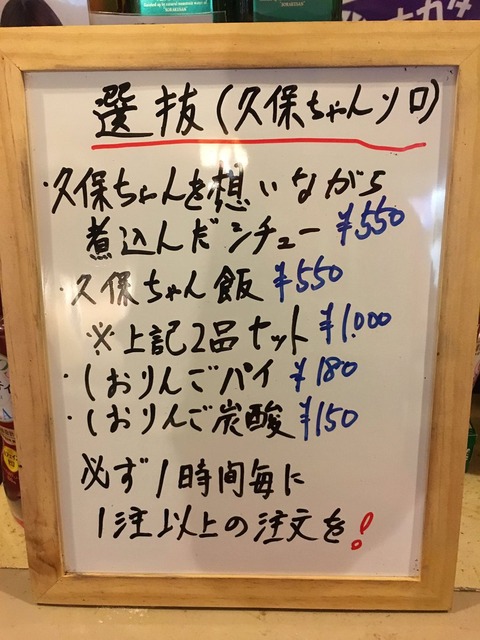 選抜(久保ちゃんソロ)
・久保ちゃんを想いながら
煮込んだシチュー ¥550
・久保ちゃん飯 ¥550
※上記2品セット ¥1.000
・しおりんごパイ ¥180
・しおりんご炭酸 ¥150
必ず1時間毎に
1注以上の注文を!